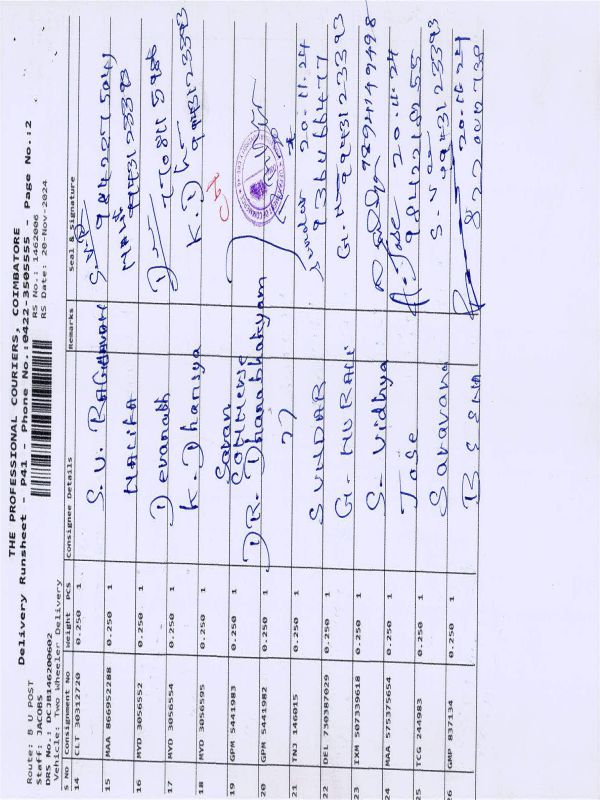 THE PROFESSIONAL COURIERS, COIMBATORE
Delivery Runsheet - P41 - Phone No.:0422-3505555 - Page No.:2
Route: B U POST
Staff: JACOBS
DRS No.: DCJB146200602
Vehicle: Two Wheeler Delivery
RS No.: 1462006
RS Date: 20-Nov-2024
S No Consignment No Weight PCS Consignee Details Remarks Seal & Signature
14 CLT 30312720 0.250 1 S.V. RAGHAVAN
15 MAA 866952288 0.250 1 MALIKA 9943123393
16 MYD 3056552 0.250 1 Devanath
17 MYD 3056554 0.250 1 K. Dhansya K. D
18 MYD 3056595 0.250 1 9943123393
19 GPM 5441983 0.250 1 COMMERSE
20 GPM 5441982 0.250 1 DR. Dhanabhakyam
21 TNJ 146015 0.250 1 SUNDAR Sundar 20-11-24
22 DEL 730387029 0.250 1 G. MURALI 9943123393
23 IXM 507339618 0.250 1 S. Vidhya 9894149498
24 MAA 575375654 0.250 1 Jose A. Jose 20.11.24
25 TCG 244983 0.250 1 Saravana 9943123393
26 GMP 837134 0.250 1 20-11-24